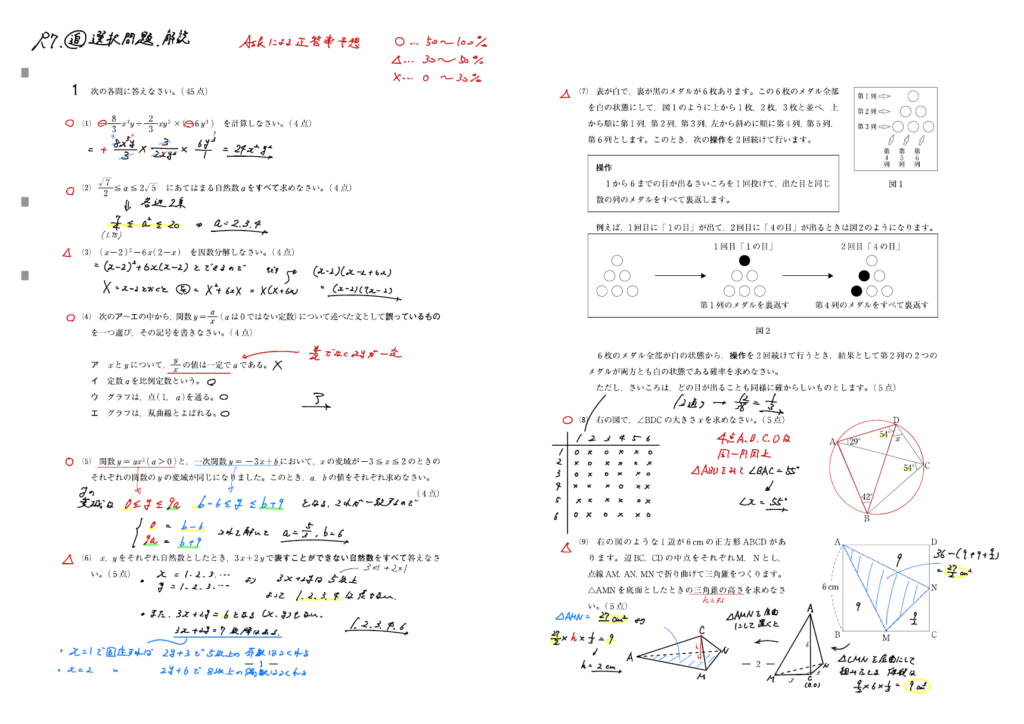 R7. 道 選択問題.解説
Askによる正答率予想
○… 50〜100%
△… 30〜50%
×… 0〜30%
1 次の各問に答えなさい。(45点)
○ (1) −8/3 x³y÷2/3 xy²×(−6y³) を計算しなさい。(4点)
= + 8x³y/3 × 3/2xy² × 6y³/1 = 24x²y²
○ (2) √7/2≦a≦2√5 にあてはまる自然数aをすべて求めなさい。(4点)
⇓ 各辺2乗
7/4 ≦ a² ≦ 20 ⇒ a=2.3.4
(1.75)
△ (3) (x−2)²−6x(2−x) を因数分解しなさい。(4点)
=(x-2)²+6x(x-2) とできるので
X=x-2とおくと 与=X²+6xX=X(X+6x)
(x-2)(x-2+6x)
=(x-2)(7x-2)
○ (4) 次のア〜エの中から,関数y=a/x(aは0ではない定数)について述べた文として誤っているもの
を一つ選び,その記号を書きなさい。(4点)
ア xとyについて,y/xの値は一定でaである。×
y/xでなくxyが一定
イ 定数aを比例定数という。○
ウ グラフは,点(1, a)を通る。○
エ グラフは,双曲線とよばれる。○
ア
○ (5) 関数y=ax²(a>0)と,一次関数y=−3x+bにおいて,xの変域が−3≦x≦2のときの
それぞれの関数のyの変域が同じになりました。このとき,a, bの値をそれぞれ求めなさい。
(4点)
yの
変域は 0≦y≦9a b-6≦y≦b+9 となる.これが一致するので
0 = b-6
9a = b+9
これを解いて a=5/3, b=6
△ (6) x, yをそれぞれ自然数としたとき,3x+2yで表すことができない自然数をすべて答えなさ
い。(5点)
3×1+2×1
・ x=1.2.3.…
y=1.2.3.…
より 3x+2yは5以上
よって 1.2.3.4は作れない.
・また. 3x+2y=6となる(x.y)はない.
3x+2y=7以降はある.
1.2.3.4.6
・x=1で固定すれば 2y+3で5以上の奇数はつくれる
・x=2 〃 2y+6で8以上の偶数はつくれる
— 1 —
△ (7) 表が白で,裏が黒のメダルが6枚あります。この6枚のメダル全部
を白の状態にして,図1のように上から1枚,2枚,3枚と並べ,上
から順に第1列,第2列,第3列,左から斜めに順に第4列,第5列,
第6列とします。このとき,次の操作を2回続けて行います。
第1列⇨
第2列⇨
第3列⇨
第4列 第5列 第6列
図1
操作
1から6までの目が出るさいころを1回投げて,出た目と同じ
数の列のメダルをすべて裏返します。
例えば,1回目に「1の目」が出て,2回目に「4の目」が出るときは図2のようになります。
1回目「1の目」
2回目「4の目」
第1列のメダルを裏返す
第4列のメダルをすべて裏返す
図2
6枚のメダル全部が白の状態から,操作を2回続けて行うとき,結果として第2列の2つの
メダルが両方とも白の状態である確率を求めなさい。
ただし,さいころは,どの目が出ることも同様に確からしいものとします。(5点)
12通り → 12/36 = 1/3
1 2 3 4 5 6
1 ○ × ○ × × ○
2 × ○ × × × ×
3 ○ × ○ × × ○
4 × × × ○ × ×
5 × × × × ○ ×
6 ○ × ○ × × ○
○ (8) 右の図で,∠BDCの大きさxを求めなさい。(5点)
4点A.B.C.Dは
同一円周上
△ABDをみて ∠BAC=55°
∠x=55°
A
B
C
D
29°
54°
x
54°
42°
△ (9) 右の図のような1辺が6cmの正方形ABCDがあ
ります。辺BC, CDの中点をそれぞれM, Nとし,
点線AM, AN, MNで折り曲げて三角錐をつくります。
△AMNを底面としたときの三角錐の高さを求めなさ
い。(5点)
hとする
A D
6cm
N
B M C
9
9
9/2
36−(9+9+9/2)
=27/2 cm²
△AMN=27/2 cm² より
27/2×h×1/3=9
h=2cm
△AMNを底面
にして置くと
A C N M h
A 6 M 3 C 3 N
(B.D)
△CMNを底面にして
組み立てると 体積は
9/2×6×1/3=9cm³
— 2 —